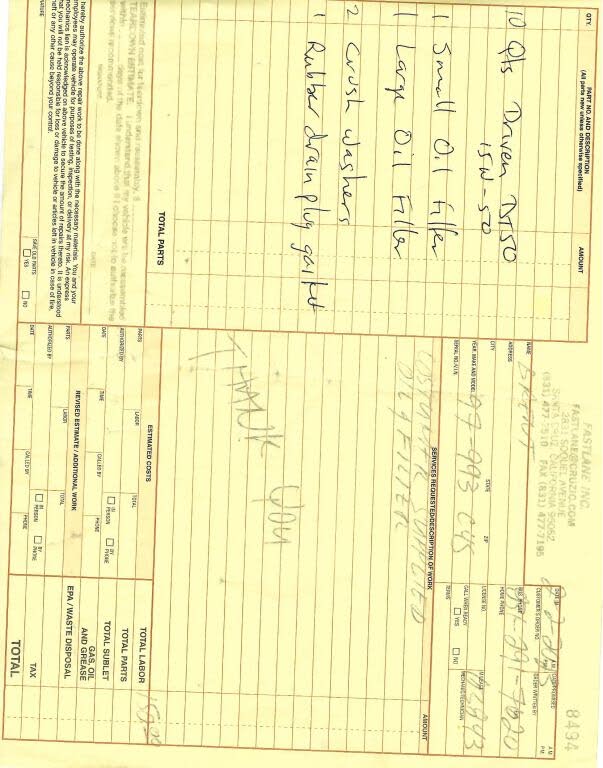 QTY.
PART NO. AND DESCRIPTION
(All parts new unless otherwise specified)
AMOUNT
10 Qts Driven DT50
15W-50
1 Small Oil Filter
1 Large Oil Filter
2 crush washers
1 Rubber drain plug gasket
TOTAL PARTS
Estimated cost for teardown and reassembly, $
TEARDOWN ESTIMATE. I understand that my vehicle will be reassembled
within days of the date shown above if I choose not to authorize the
service recommended.
DATE
hereby authorize the above repair work to be done along with the necessary materials. You and your
employees may operate vehicle for purposes of testing, inspection, or delivery at my risk. An express
mechanics lien is acknowledged on above vehicle to secure the amount of repairs thereto. It is understood
that you will not be held responsible for loss or damage to vehicle or articles left in vehicle in case of fire,
theft or any other cause beyond your control.
SAVE OLD PARTS
YES
NO
8434
FASTLANE INC.
FASTLANE@CRUZIO.COM
2831 SOQUEL AVENUE
SANTA CRUZ, CALIFORNIA 95062
FAX (831) 477-7195
NAME
BRENT
ADDRESS
CITY
STATE
ZIP
YEAR, MAKE AND MODEL
SERIAL NO./V.I.N.
A.M.
P.M.
CUSTOMER'S ORDER NO.
ORDER WRITTEN BY
HOME PHONE
LICENSE NO.
CALL WHEN READY
YES
NO
TERMS
MECHANIC/TECHNICIAN
SERVICES REQUESTED/DESCRIPTION OF WORK
AMOUNT
CUSTOMER SUPPLIED
OIL & FILTER
THANK YOU
ESTIMATED COSTS
PARTS
LABOR
TOTAL
AUTHORIZED BY
DATE
TIME
CALLED BY
IN PERSON
BY PHONE
PHONE
REVISED ESTIMATE / ADDITIONAL WORK
PARTS
LABOR
TOTAL
AUTHORIZED BY
IN PERSON
BY PHONE
DATE
TIME
CALLED BY
PHONE
TOTAL LABOR
TOTAL PARTS
TOTAL SUBLET
GAS, OIL
AND GREASE
EPA / WASTE DISPOSAL
TAX
TOTAL